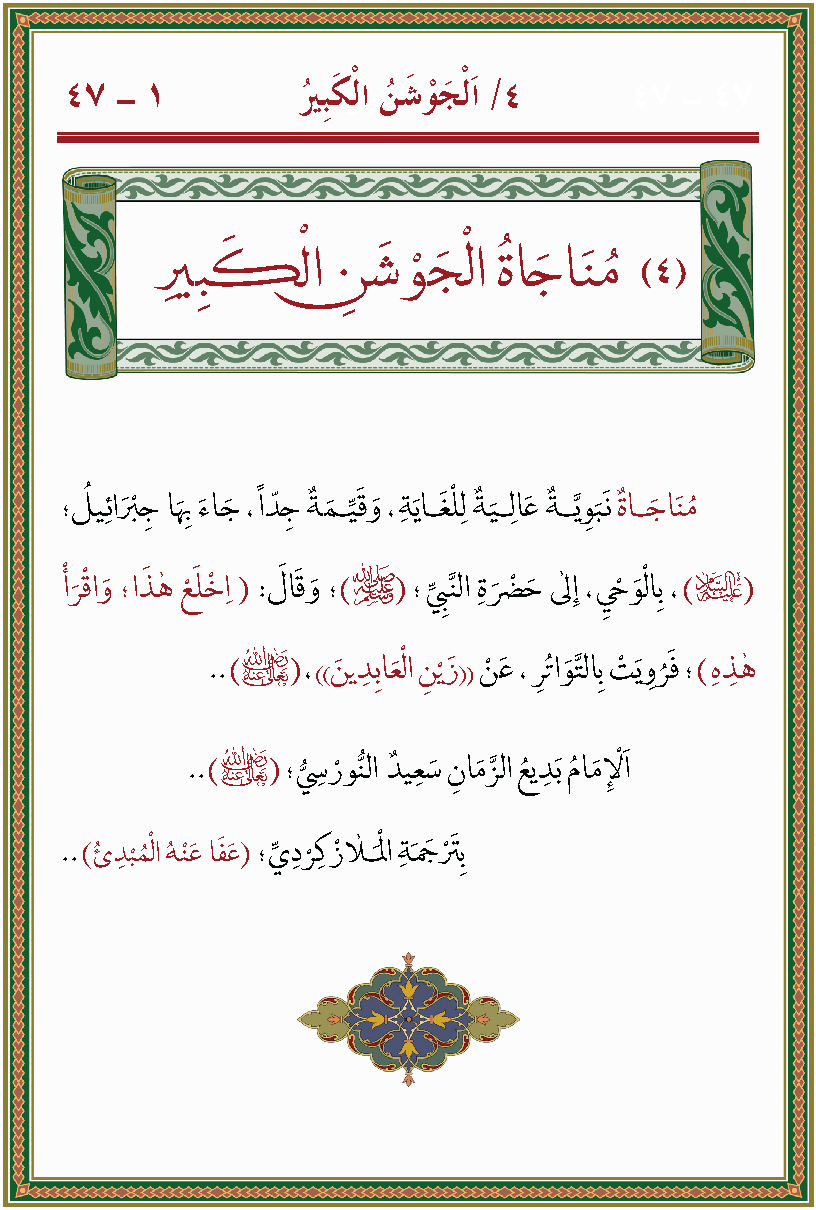 ٤/ اَلْجَوْشَنُ الْكَبِيرُ ١ – ٤٧
(٤) مُنَاجَاةُ الْجَوْشَنِ الْكَبِيرِ
مُنَاجَاةٌ نَبَوِيَّةٌ عَالِيَةٌ لِلْغَايَةِ، وَقَيِّمَةٌ جِدّاً، جَاءَ بِهَا جِبْرَائِيلُ؛
(عَلَيْهِ السَّلَامُ)، بِالْوَحْيِ، إِلَى حَضْرَةِ النَّبِيِّ؛ (ﷺ)؛ وَقَالَ: (اِخْلَعْ هٰذَا؛ وَاقْرَأْ
هٰذِهِ)؛ فَرُوِيَتْ بِالتَّوَاتُرِ، عَنْ ((زَيْنِ الْعَابِدِينَ))، (رَضِيَ اللهُ تَعَالَى عَنْهُ)..
اَلْإِمَامُ بَدِيعُ الزَّمَانِ سَعِيدٌ النُّورْسِيُّ؛ (رَضِيَ اللهُ تَعَالَى عَنْهُ)..
بِتَرْجَمَةِ الْمَلَازْكِرْدِيِّ؛ (عَفَا عَنْهُ الْمُبْدِئُ)..